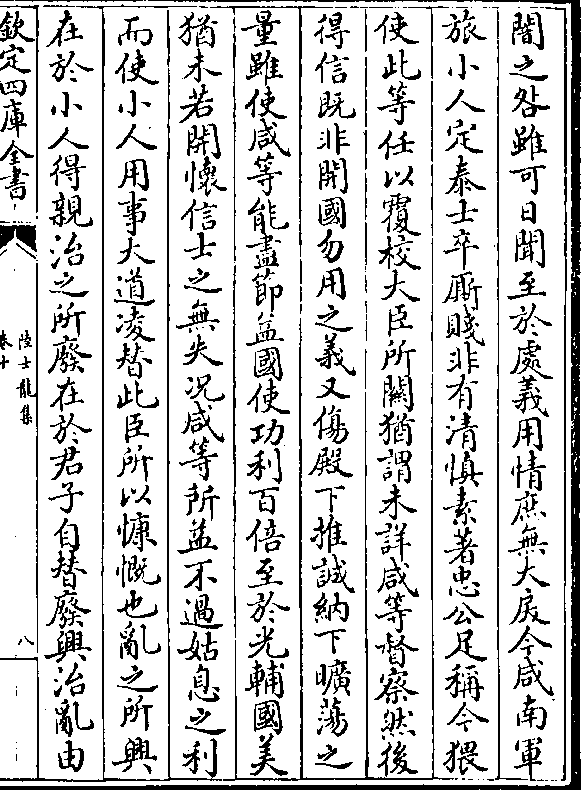 闇之咎雖可日聞至於處義用情庶無大戾今咸南軍
旅小人定泰士卒厮賤非有清慎素著忠公足稱今猥
使此等任以覆校大臣所關猶謂未詳咸等督察然後
得信既非開國勿用之義又傷殿下推誠納下曠蕩之
量雖使咸等能盡節益國使功利百倍至於光輔國美
猶未若開懷信士之無失况咸等所益不過姑息之利
而使小人用事大道凌替此臣所以慷慨也亂之所興
在於小人得親治之所廢在於君子自替廢興治亂由
欽定四庫全書
陸士龍集
卷十
八